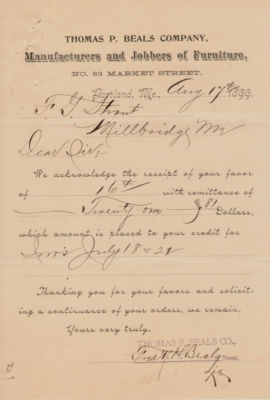 THOMAS P. BEALS COMPANY,
Manufacturers and Jobbers of Furniture,
NO. 83 MARKET STREET.
Portland, Me., Aug 17th 1899.
F. G. Strout
Millbridge Me
Dear Sir,
We acknowledge the receipt of your favor
of 16th with remittance of
Twenty one 81 Dollars,
which amount is closed to your credit for
Inv's July 18 & 21
Thanking you for your favors and solicit-
ing a continuance of your orders, we remain,
Yours very truly,
THOMAS P. BEALS CO.,
Fred H. Beals Treas.